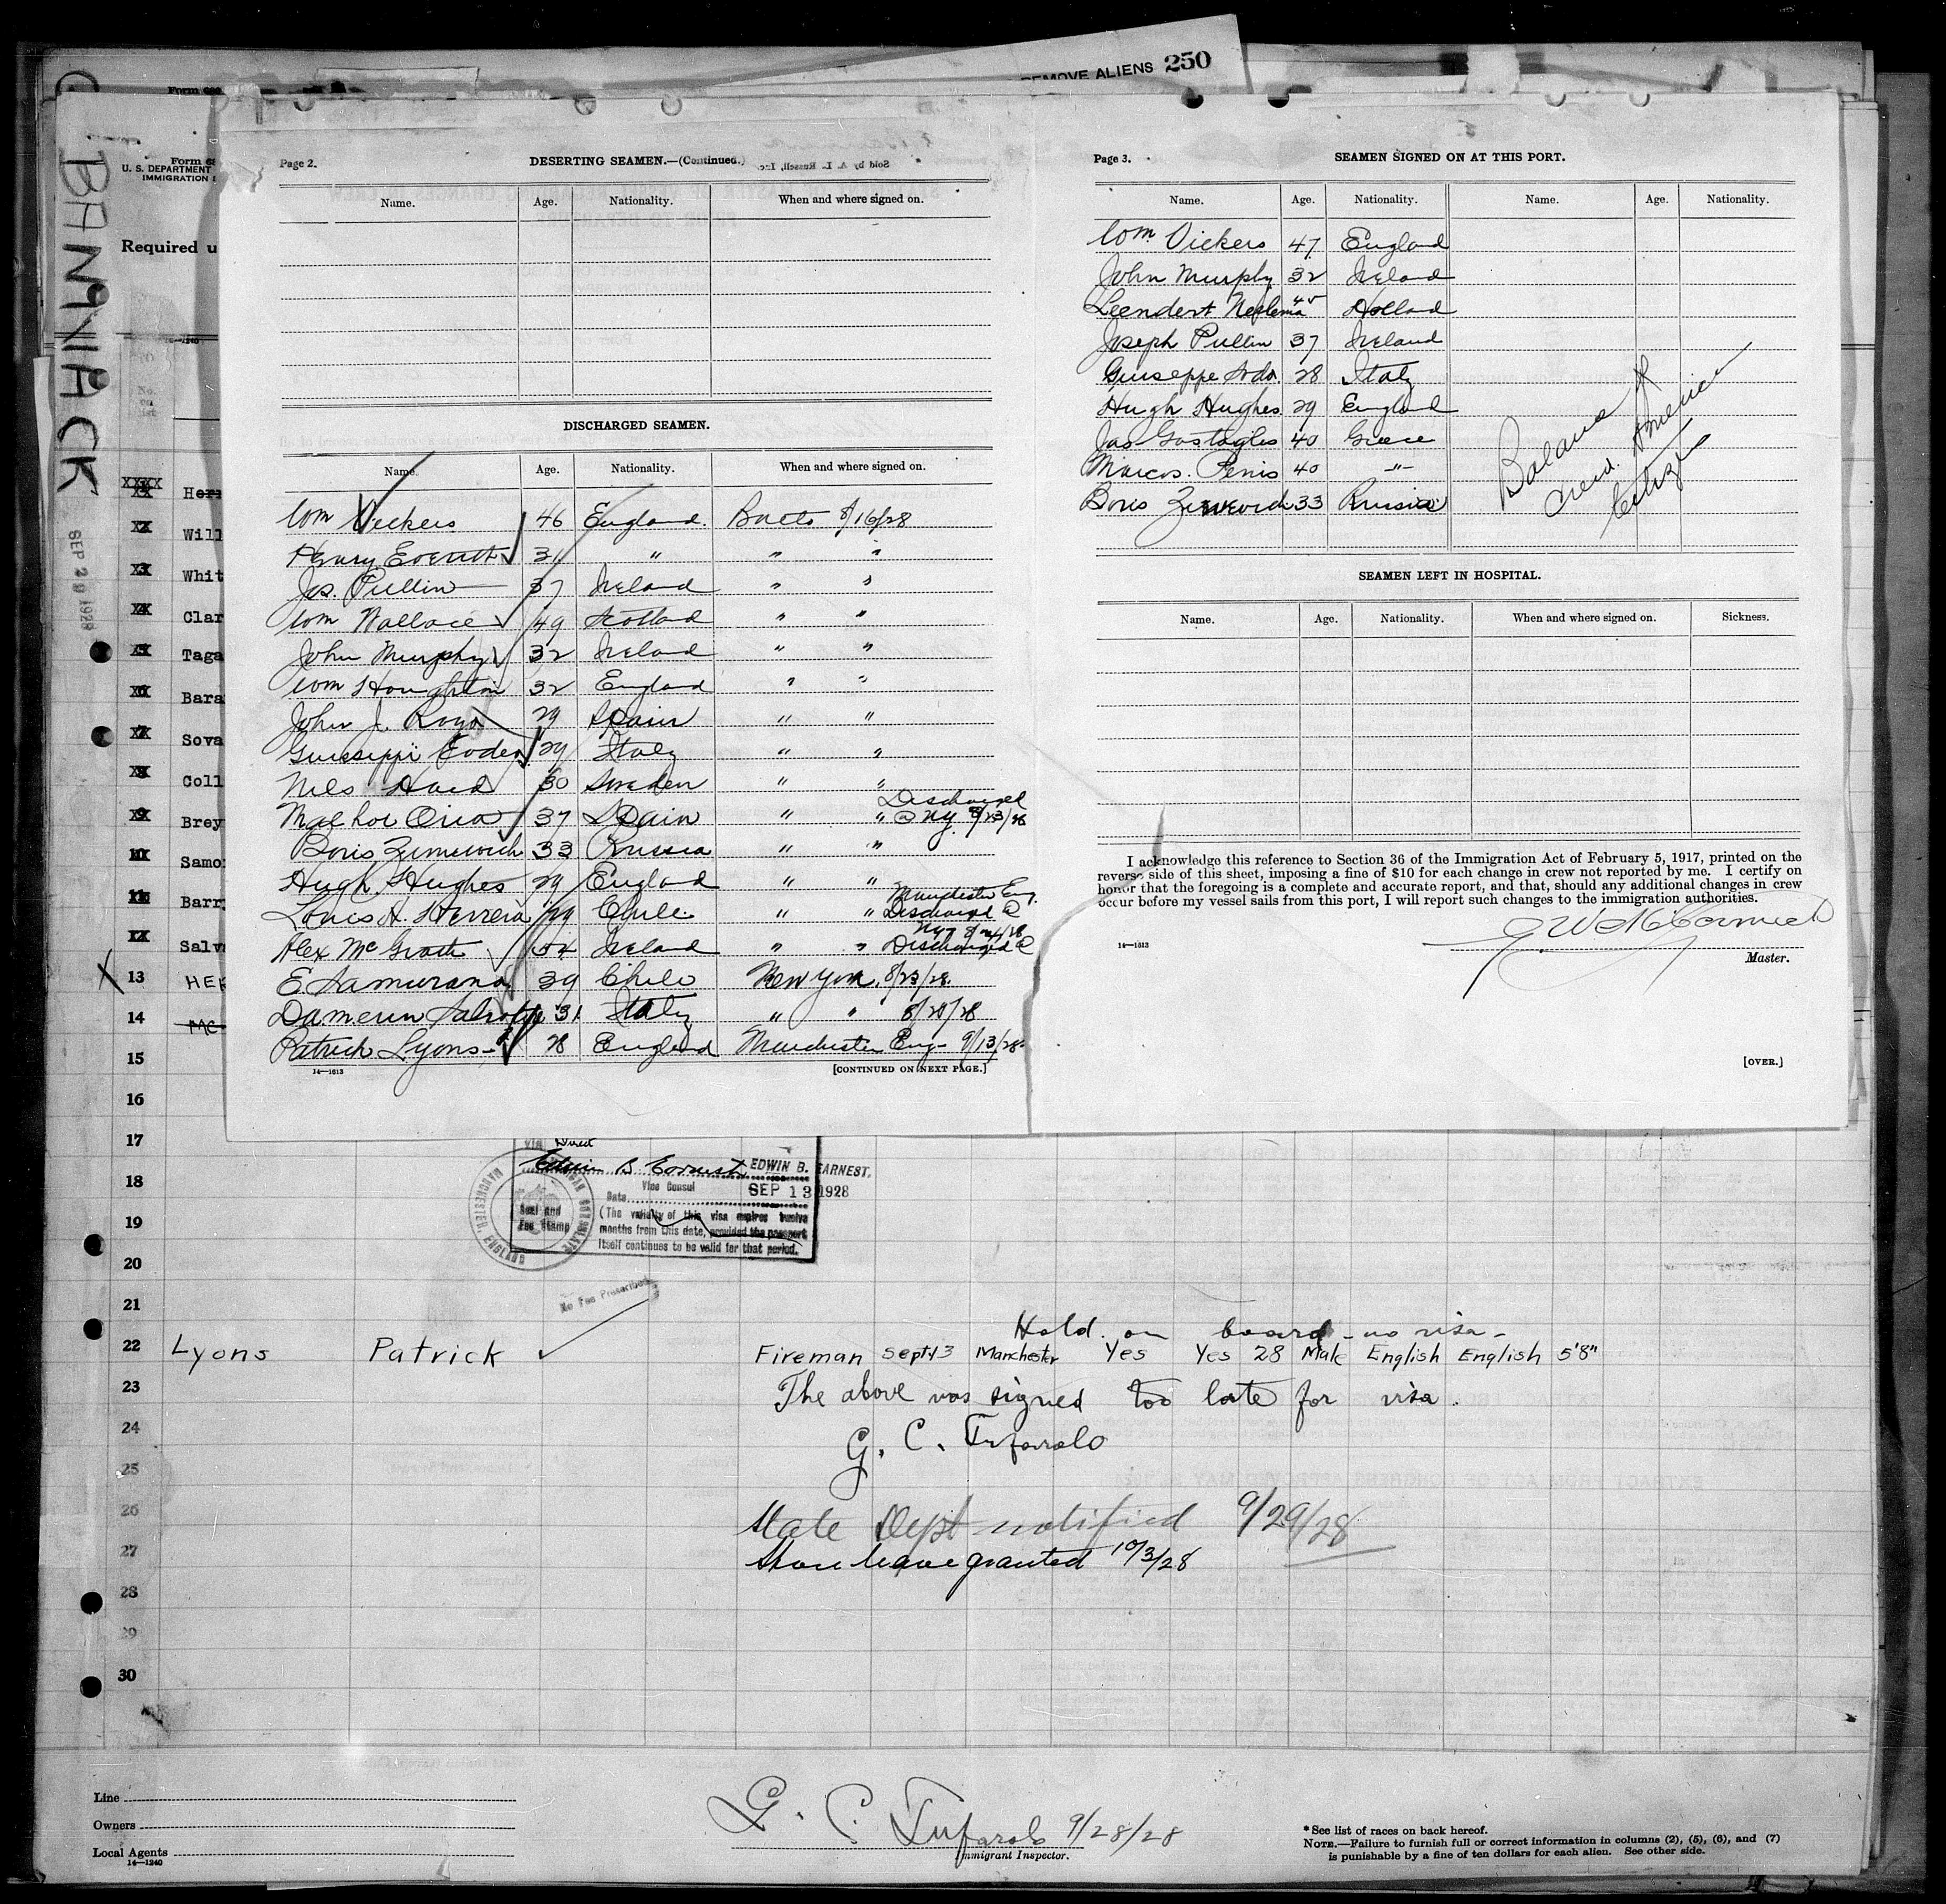 REMOVE ALIENS 250
Form 68
U. S. DEPARTMENT
IMMIGRATION
Required u
BAMNIACK
SEP 29 1928
Page 2.
DESERTING SEAMEN.—(Continued.)
Sold by A. L. Russell, Inc.
Name. Age. Nationality. When and where signed on.
DISCHARGED SEAMEN.
Name. Age. Nationality. When and where signed on.
Wm Vickers 46 England. Balto 8/16/28
Henry Everitt 31 " " "
Jas. Pullin 37 Ireland " "
Wm Wallace 49 Scotland " "
John Murphy 32 Ireland " "
Wm Houghton 32 England " "
John J. Roya 29 Spain " "
Guiseppi 29 Italy " "
Nils 30 Sweden " "
Discharged
37 Spain " " @ NY. 8/23/28
Boris Zunewich 33 Russia " "
Hugh Hughes 29 England " "
Manchester Eng.
Louis A. Herrera 29 Chile " " Discharged @
NY 8/24/28
Alex McGrath 54 Ireland " " Discharged @
E. 39 Chile New York. 8/23/28.
31 Italy " " 8/28/28
Patrick Lyons 28 England Manchester Eng- 9/13/28
14—1613
[CONTINUED ON NEXT PAGE.]
Page 3.
SEAMEN SIGNED ON AT THIS PORT.
Name. Age. Nationality. Name. Age. Nationality.
Wm. Vickers 47 England
John Murphy 32 Ireland
Leendert 45 Holland
Joseph Pullin 37 Ireland
Guiseppe 28 Italy
Hugh Hughes. 29 England
Jas Gostaglis 40 Greece
Marcos. Penis 40 -"-
Boris Zunewich 33 Russia
Balance of
crew. American
Citizen
SEAMEN LEFT IN HOSPITAL.
Name. Age. Nationality. When and where signed on. Sickness.
I acknowledge this reference to Section 36 of the Immigration Act of February 5, 1917, printed on the
reverse side of this sheet, imposing a fine of $10 for each change in crew not reported by me. I certify on
honor that the foregoing is a complete and accurate report, and that, should any additional changes in crew
occur before my vessel sails from this port, I will report such changes to the immigration authorities.
J W McCormick
14—1613
Master.
[OVER.]
Will
Whit
Clar
Taga
Bara
Sova
Coll
Brey
Samo
Barr
Salv
X 13 HER
14 MC
15
16
17
18
19
20
21
VIA Direct
Edwin B Earnest EDWIN B. EARNEST.
Vice Consul
Date SEP 13 1928
(The validity of this visa expires twelve
months from this date, provided the passport
itself continues to be valid for that period.
Seal and
Fee Stamp
AMERICAN CONSULATE
MANCHESTER, ENGLAND
No Fee Prescribed.
Hold on board - no visa -
22 Lyons Patrick Fireman Sept 13 Manchester Yes Yes 28 Male English English 5'8"
23 The above was signed too late for visa.
24 G. C. Tufarolo
25
26 State Dept notified 9/29/28
27 Shore leave granted 10/3/28
28
29
30
Line
Owners
Local Agents
14—1240
G. C. Tufarolo 9/28/28
Immigrant Inspector.
* See list of races on back hereof.
NOTE.—Failure to furnish full or correct information in columns (2), (5), (6), and (7)
is punishable by a fine of ten dollars for each alien. See other side.